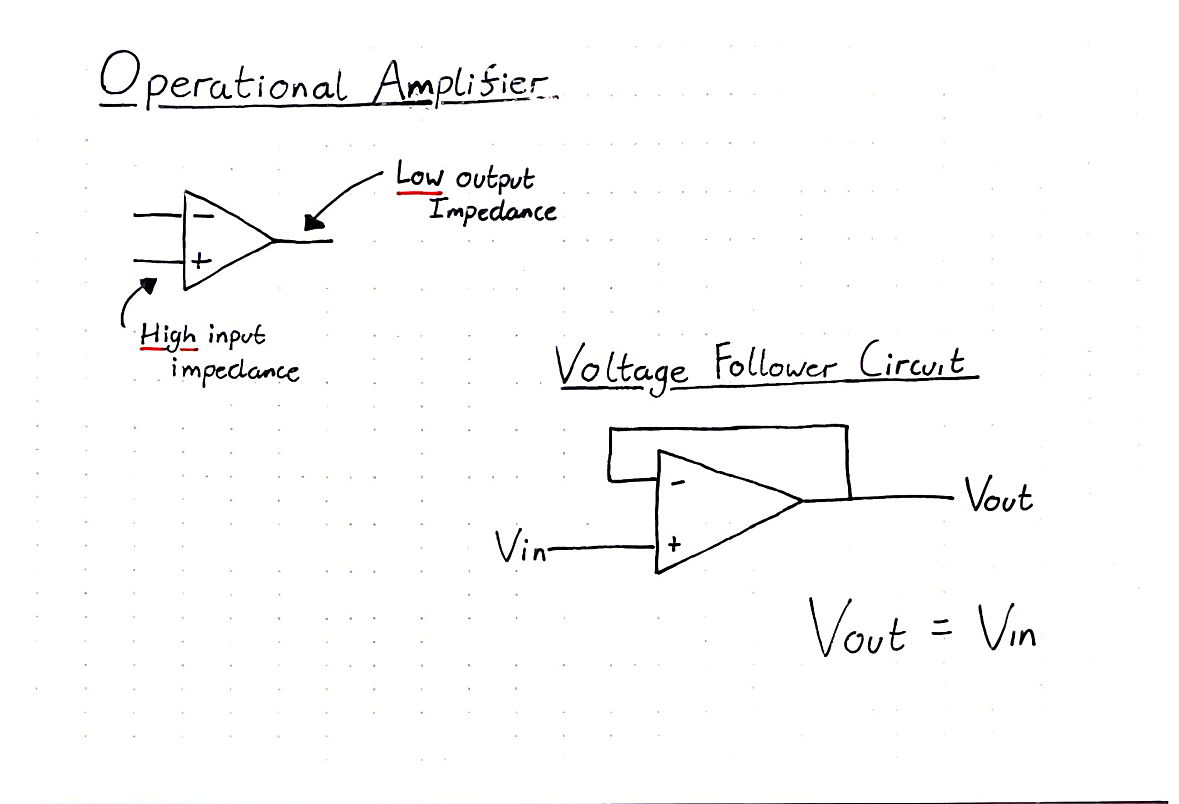 Operational Amplifier
Low output
Impedance
-
+
High input
impedance
Voltage Follower Circuit
-
Vout
Vin
+
Vout = Vin